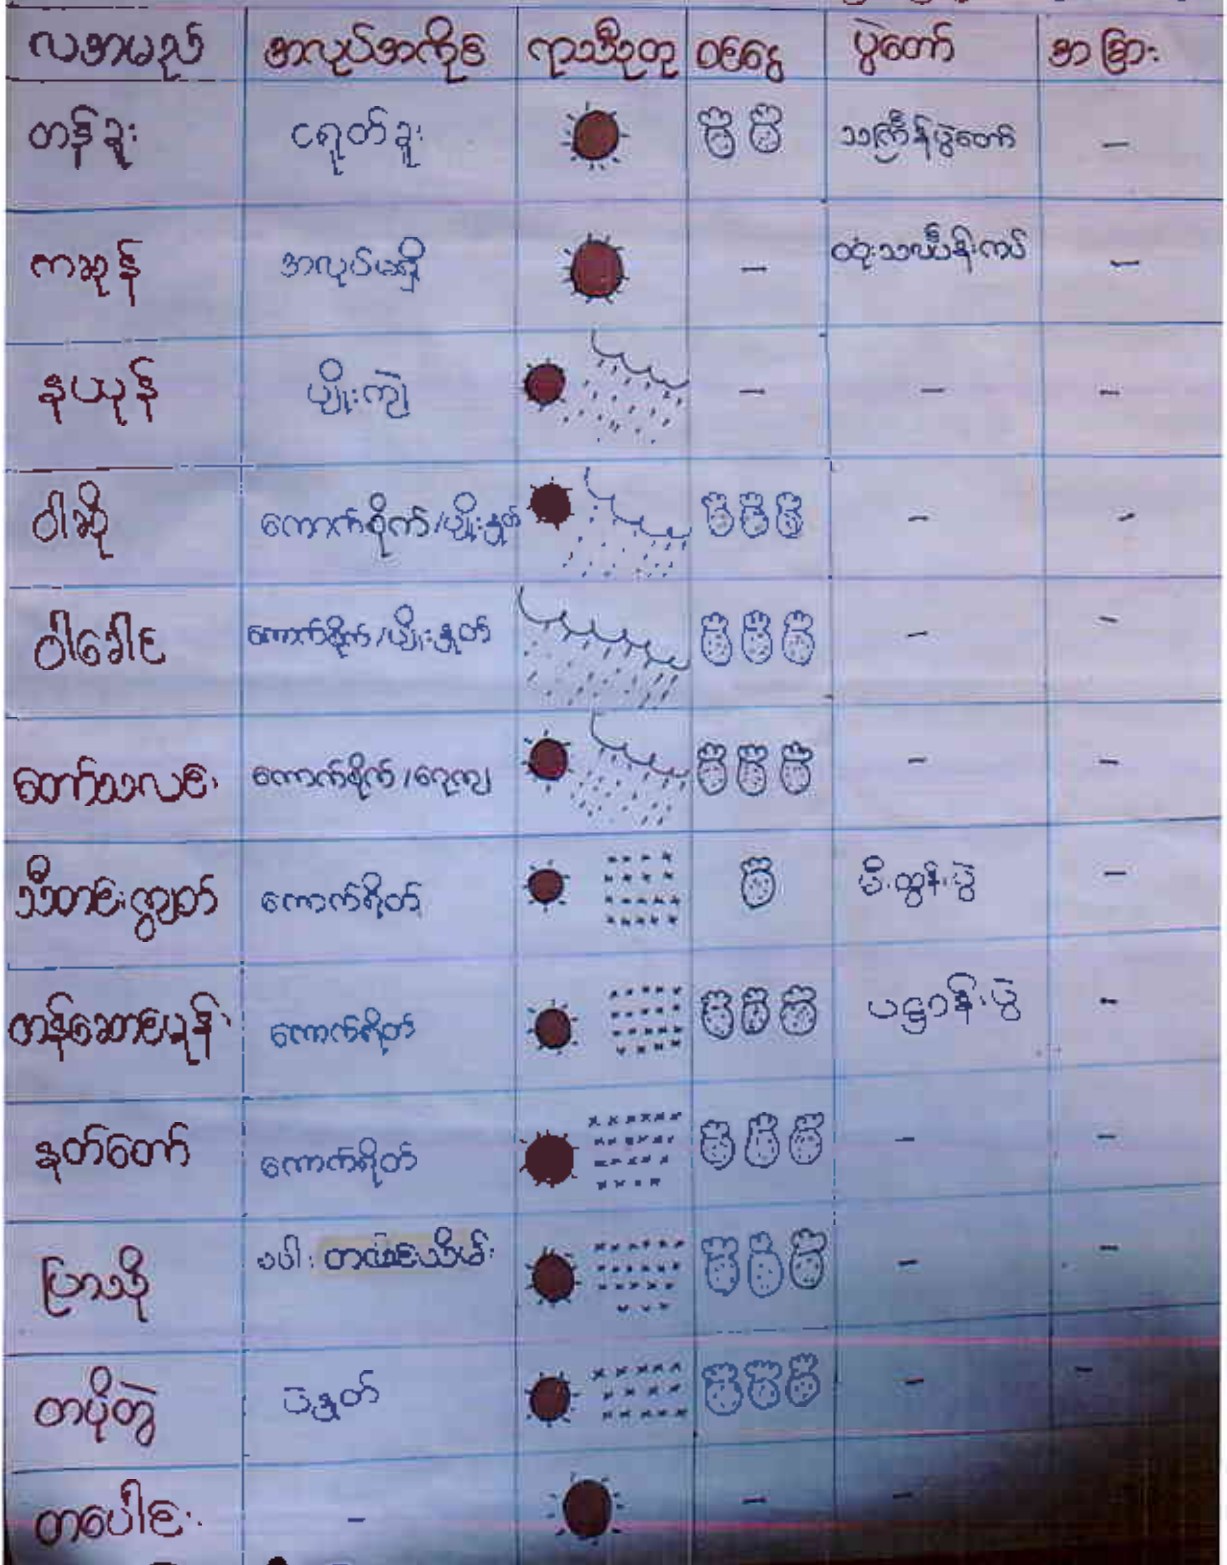 လအမည် အလုပ်အကိုင် ရာသီဥတု ဝင်ငွေ ပွဲတော် အခြား
တန်ခူး ငရုတ်ခူး သင်္ကြန်ပွဲတော် -
ကဆုန် အလုပ်မရှိ - ထုံးသင်္ဃန်းကပ် -
နယုန် ပျိုးကျဲ - - -
ဝါဆို ကောက်စိုက်/ပျိုးနှုတ် - -
ဝါခေါင် ကောက်စိုက်/ပျိုးနှုတ် - -
တော်သလင်း ကောက်စိုက် - -
သီတင်းကျွတ် ကောက်ရိတ် မီးထွန်းပွဲ -
တန်ဆောင်မုန်း ကောက်ရိတ် ပဋ္ဌာန်းပွဲ -
နတ်တော် ကောက်ရိတ် - -
ပြာသို စပါး - -
တပို့တွဲ ပဲနှုတ် - -
တပေါင်း - - -